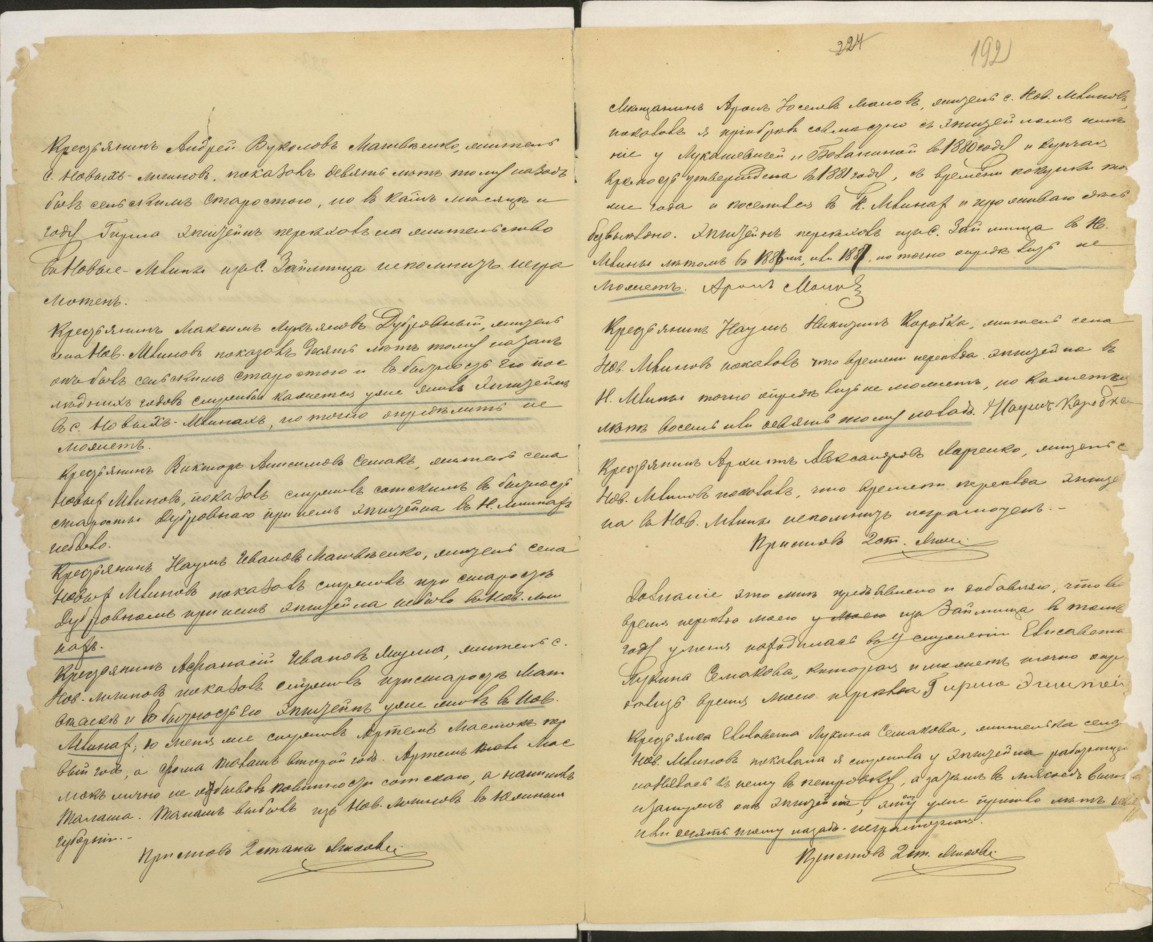 Крестьянинъ Андрей Вуколовъ Матвѣенко, житель
с. Новыхъ-Млиновъ, показалъ девять лѣтъ тому назадъ
былъ сельскимъ старостою, но въ какъ мѣсяцѣ и
году Гирша Эпштейнъ переѣхалъ на жительство
въ Новые-Млины изъ с. Займища непомнитъ негра
мотенъ.
Крестьянинъ Максимъ Лукьяновъ Дубровный, житель
села Нов. Млиновъ показалъ лѣтъ тому назадъ
онъ былъ сельскимъ старостою и въ бытность его пос
лѣднихъ годовъ службы кажется уже жилъ Эпштейнъ
въ с. Новыхъ-Млинахъ, но точно опредѣлить не
можетъ.
Крестьянинъ Викторъ Анисимовъ Семакъ, житель села
Новыхъ Млиновъ, показалъ служилъ сотскимъ въ бытность
старосты Дубровнаго при немъ Эпштейна въ Н. Млинахъ
небыло.
Крестьянинъ Наумъ Ивановъ Матвѣенко, житель села
Новыхъ Млиновъ показалъ служилъ при старостѣ
Дубровномъ при немъ Эпштейна небыло въ Нов. Мли
нахъ.
Крестьянинъ Афанасій Ивановъ житель с.
Нов. Млиновъ показалъ служилъ при старостѣ Мат
и въ бытность его Эпштейнъ уже жилъ въ Нов.
Млинахъ, у меня же служилъ первый
годъ, а второй годъ.
лично не отбывалъ повинности сотскаго, а нанималъ
выбылъ изъ Нов. Млиновъ въ
губернію.
Приставъ 2 стана
224
192
Мѣщанинъ Аронъ Іоселевъ житель с. Нов. Млиновъ,
показалъ я пріобрѣлъ совмѣстно съ Эпштейномъ имѣ
ніе у и въ 1880 году и купчая
крѣпость утверждена въ 1881 году, съ времени покупки то
же года и поселился въ Н. Млинахъ и проживаю здѣсь
безвыѣздно. Эпштейнъ переѣхалъ изъ с. Займища въ Н.
Млины лѣтомъ въ или но точно опредѣлить не
можетъ. Аронъ
Крестьянинъ Наумъ Никитинъ Коробка, житель села
Нов. Млиновъ показалъ что времени переѣзда Эпштейна въ
Н. Млины точно опредѣлить не можетъ, но кажется
лѣтъ восемь или девять тому назадъ. Наумъ Коробка
Крестьянинъ Архипъ Александровъ житель с.
Нов. Млиновъ показалъ, что времени переѣзда Эпштей
на въ Нов. Млины непомнитъ неграмотенъ.
Приставъ 2 ст.
Дознаніе это мнѣ предъявлено и добавляю, что во
время переѣзда моего изъ Займища въ томъ
году у меня находилась въ услуженіи Елисавета
Лукина Семакова, которая и можетъ точно опре
дѣлить время моего переѣзда Гирша Эпштейн
Крестьянка Елисавета Лукина Семакова, жителька села
Нов. Млиновъ показала я служила у Эпштейна работницей
нанялась къ нему въ петровку, а затѣмъ въ мясоѣдъ вышла
замужъ отъ Эпштейна, этому уже прошло лѣтъ
или девять тому назадъ. неграмотная.
Приставъ 2 ст.